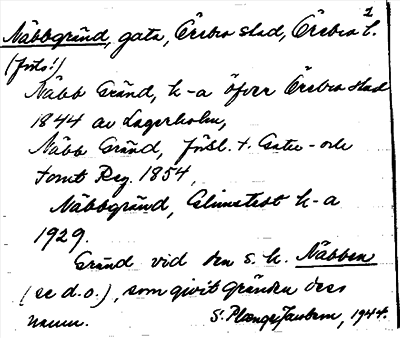 1
Näbbgränd, gata, Örebro stad, Örebro l.
(forts.)
Näbb Gränd, k-a öfver Örebro stad
1844 av Lagerholm,
Näbb Gränd, försl. t. Gatu- och
Tomt Reg. 1854,
Näbbgränd, Glimstedt k-a
1929.
Gränd vid den s. k. Näbben
(se d.o.), som givit gränden dess
namn.
S. 1944.